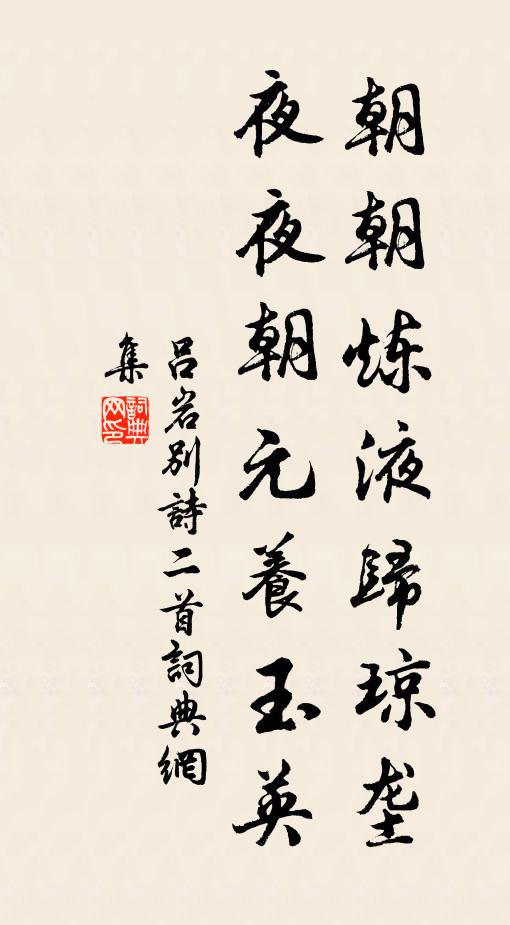 朝朝炼液歸琼垄
夜夜朝元養玉英
吕岩别詩二首詞典網
集
詞典
网印